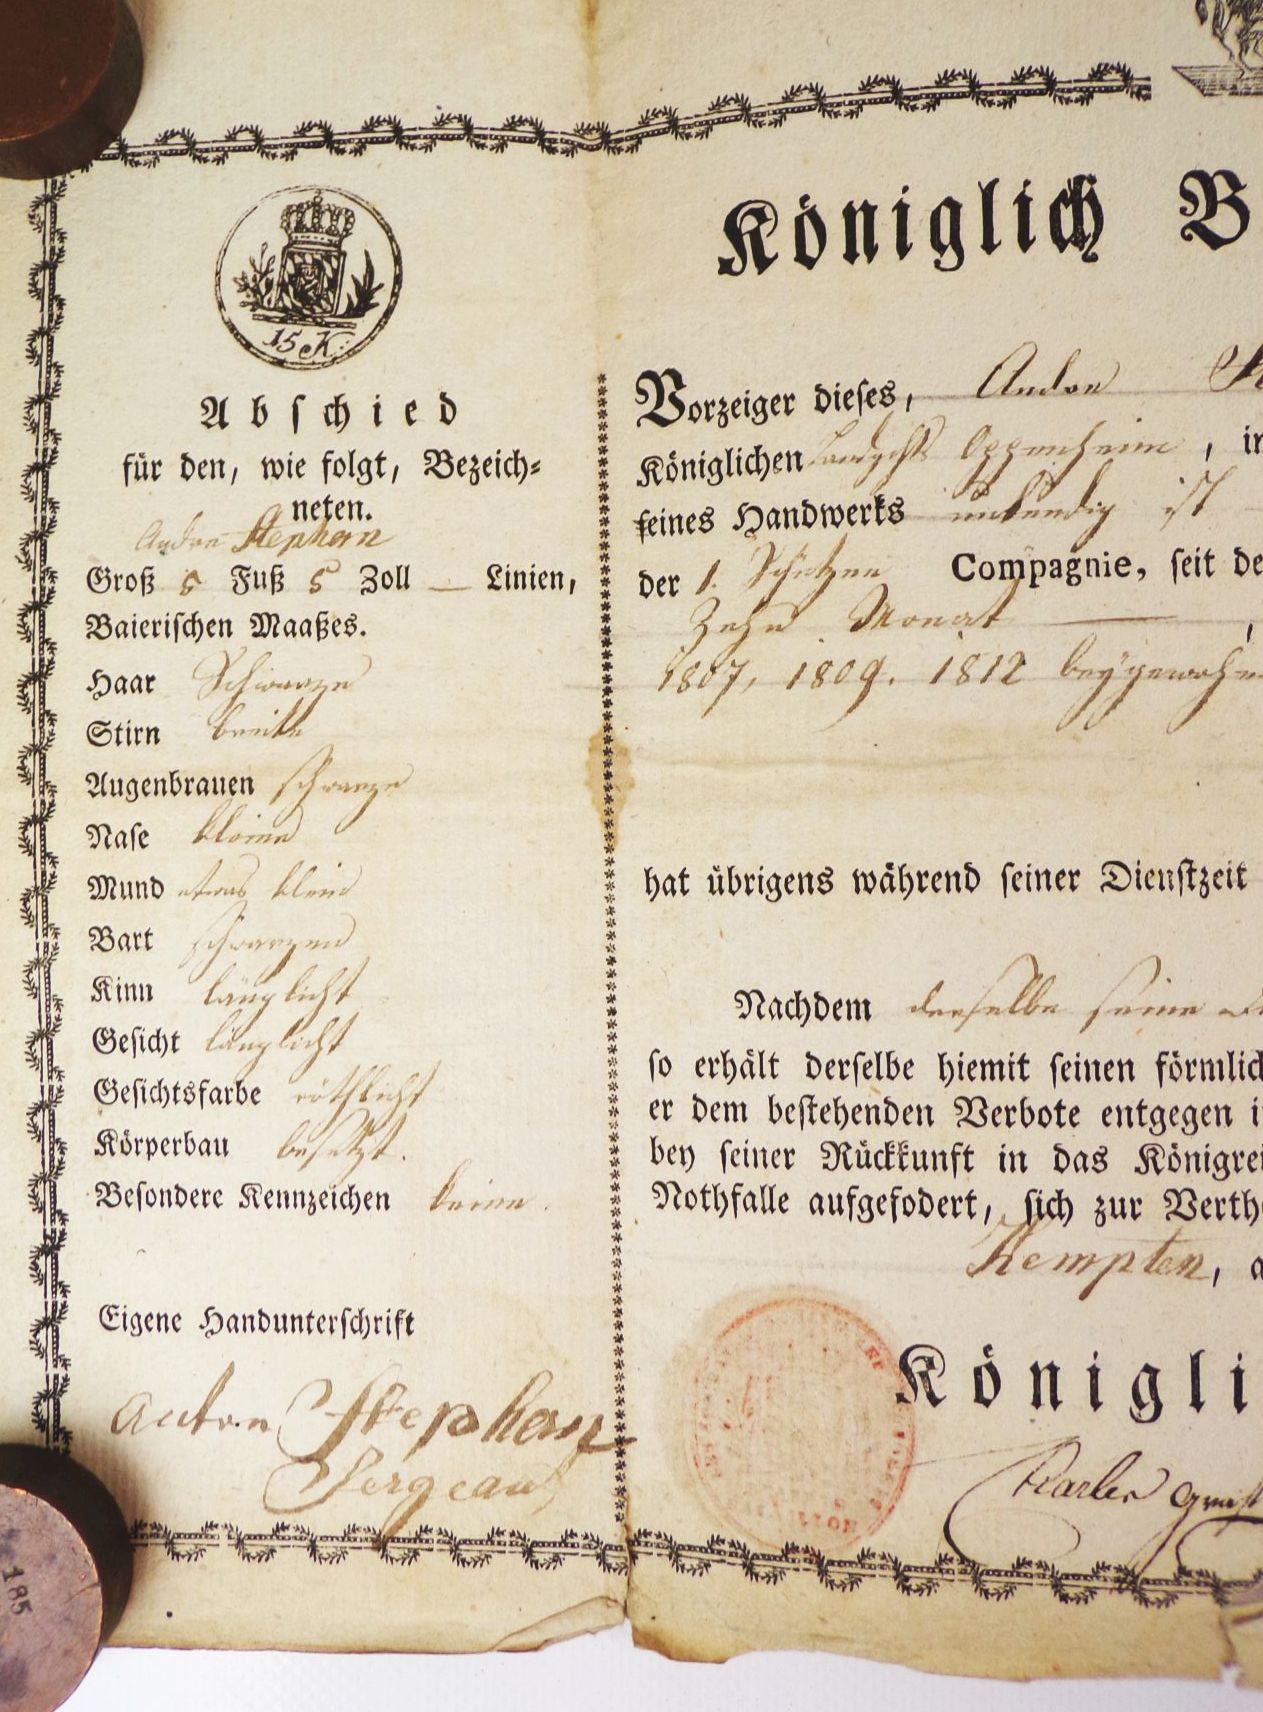 15 K:
Abschied
für den, wie folgt, Bezeich-
neten.
Stephan
Groß 5 Fuß 5 Zoll — Linien,
Baierischen Maaßes.
Haar Schwarze
Stirn breite
Augenbrauen schwarze
Nase kleine
Mund etwas klein
Bart schwarzen
Kinn länglicht
Gesicht länglicht
Gesichtsfarbe röthlicht
Körperbau besetzt.
Besondere Kennzeichen keine.
Eigene Handunterschrift
Stephan
Sergeant
Königlich B
Vorzeiger dieses,
Königlichen Landgchts , in
seines Handwerks unkundig ist
der 1. Schützen Compagnie, seit de
Zehn Monat — ,
1807, 1809. 1812 beygewohn
hat übrigens während seiner Dienstzeit
Nachdem derselbe seine
so erhält derselbe hiemit seinen förmlich
er dem bestehenden Verbote entgegen i
bey seiner Rückkunft in das Königrei
Nothfalle aufgefodert, sich zur Verth
Kempten, a
Königli
185